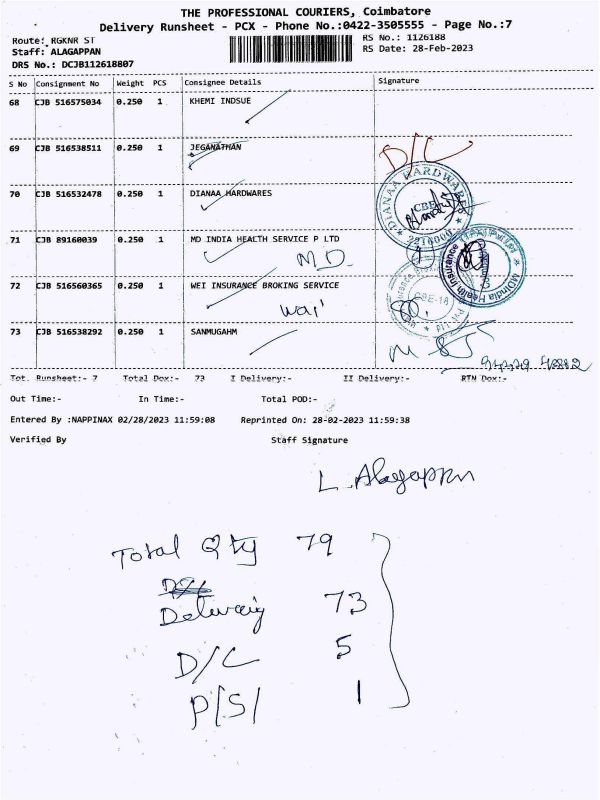 THE PROFESSIONAL COURIERS, Coimbatore
Delivery Runsheet - PCX - Phone No.:0422-3505555 - Page No.:7
Route: RGKNR ST
RS No.: 1126188
Staff: ALAGAPPAN
RS Date: 28-Feb-2023
DRS No.: DCJB112618807
S No Consignment No Weight PCS Consignee Details Signature
68 CJB 516575034 0.250 1 KHEMI INDSUE
69 CJB 516538511 0.250 1 JEGANATHAN
D/C
70 CJB 516532478 0.250 1 DIANAA HARDWARES
DIANAA HARDWARE
CBE
71 CJB 89160039 0.250 1 MD INDIA HEALTH SERVICE P LTD
M.D.
MDIndia Health Insurance
72 CJB 516560365 0.250 1 WEI INSURANCE BROKING SERVICE
CBE-18
wai
73 CJB 516538292 0.250 1 SANMUGAHM
Tot. Runsheet:- 7 Total Dox:- 73 I Delivery:- II Delivery:- RTN Dox:-
Out Time:- In Time:- Total POD:-
Entered By :NAPPINAX 02/28/2023 11:59:08 Reprinted On: 28-02-2023 11:59:38
Verified By Staff Signature
L. Alagappan
Total Qty 79
Delivaig 73
D/C 5
P/S/ 1